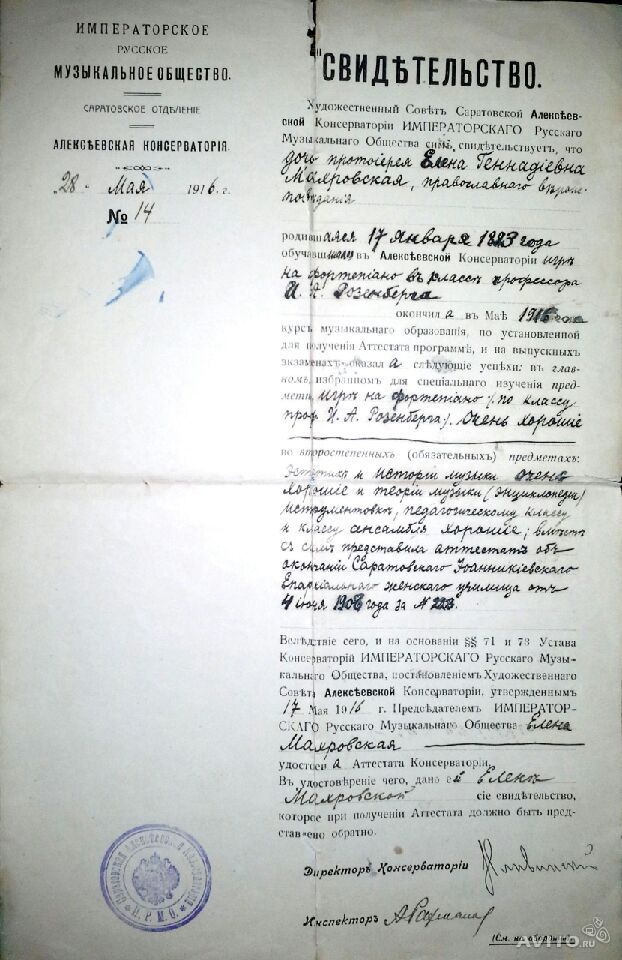 ИМПЕРАТОРСКОЕ
РУССКОЕ
МУЗЫКАЛЬНОЕ ОБЩЕСТВО.
САРАТОВСКОЕ ОТДѢЛЕНІЕ
АЛЕКСѢЕВСКАЯ КОНСЕРВАТОРІЯ.
28 Мая 1916 г.
№ 14
СВИДѢТЕЛЬСТВО.
Художественный Совѣтъ Саратовской Алексѣев-
ской Консерваторіи ИМПЕРАТОРСКАГО Русскаго
Музыкальнаго Общества симъ свидѣтельствуетъ, что
дочь протоіерея Елена Геннадіевна
Маяровская, православнаго вѣроис-
повѣданія
родившаяся 17 Января 1893 года
обучавшаяся въ Алексѣевской Консерваторіи игрѣ
на фортепіано въ классѣ профессора
И. А. Розенберга
окончила въ Маѣ 1916 года
курсъ музыкальнаго образованія, по установленной
для полученія Аттестата программѣ, и на выпускныхъ
экзаменахъ оказала слѣдующіе успѣхи: въ глав-
номъ, избранномъ для спеціальнаго изученія пред-
метѣ игрѣ на фортепіано /по классу
проф. И. А. Розенберга/. очень хорошіе
во второстепенныхъ (обязательныхъ) предметахъ:
Эстетикѣ и исторіи музыки очень
хорошіе и теоріи музыки (энциклопедіи)
инструментовкѣ, педагогическому классу
и классу ансамбля хорошіе; вмѣстѣ
съ симъ представила аттестатъ объ
окончаніи Саратовскаго Іоанникіевскаго
Епархіальнаго женскаго училища отъ
4 іюня 1908 года за № 223.
Вслѣдствіе сего, и на основаніи §§ 71 и 73 Устава
Консерваторій ИМПЕРАТОРСКАГО Русскаго Музы-
кальнаго Общества, постановленіемъ Художественнаго
Совѣта Алексѣевской Консерваторіи, утвержденнымъ
17 Мая 1916 г. Предсѣдателемъ ИМПЕРАТОР-
СКАГО Русскаго Музыкальнаго Общества Елена
Маяровская
удостоена Аттестата Консерваторіи.
Въ удостовѣреніе чего, дано ей Еленѣ
Маяровской сіе свидѣтельство,
которое при полученіи Аттестата должно быть пред-
ставлено обратно.
Директоръ Консерваторіи
Инспекторъ
(См. на оборотѣ)
И. Р. М. О.
AVITO.ru